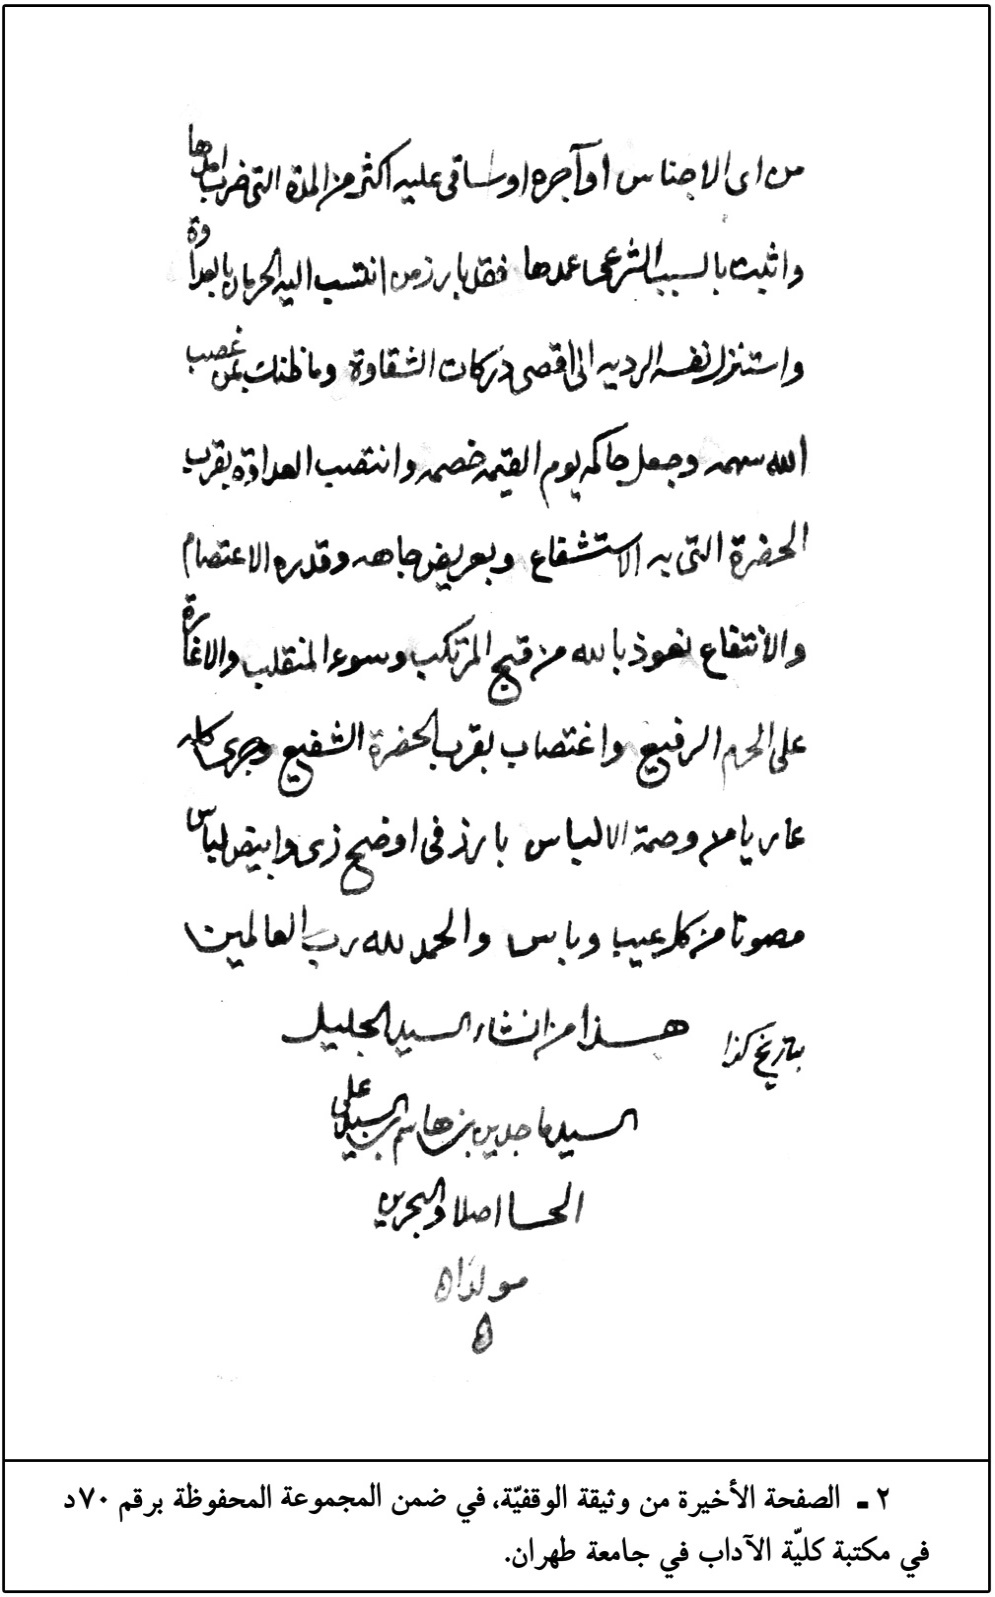 من اى الاجناس اوآجره اوساقى عليه اكثر من المدة التى ضرب امدها
واثبت بالسبب الشرعى عمدها فقد بارز من انتسب اليه الحرمان بالعداوة
واستنزل نفسه الرديه الى اقصى دركات الشقاوة وما ظنك بمن غصب
الله سهمه وجعل حاكمه يوم القيمه خصمه وانتصب العداوة بقرب
الحضرة التى به الاستشفاع وبعريض جاهه وقدره الاعتصام
والانتفاع نعوذ بالله من قبيح المرتكب وسوء المنقلب والاغارة
على الحرم الرفيع واغتصاب بقرب الحضرة الشفيع وجرى كله
عاريا من وصمة الالباس بارز فى اوضح زى وابيض لباس
مصونا من كل عيب وباس والحمد لله رب العالمين
بتاريخ كذا هذا من انشاء السيد الجليل
السيد ماجد بن هاشم بن السيد على
الحسا اصلا والبحرين
مولدا ه
ه
٢ ـ الصفحة الأخيرة من وثيقة الوقفيّة، في ضمن المجموعة المحفوظة برقم ٧٠د
في مكتبة كليّة الآداب في جامعة طهران.